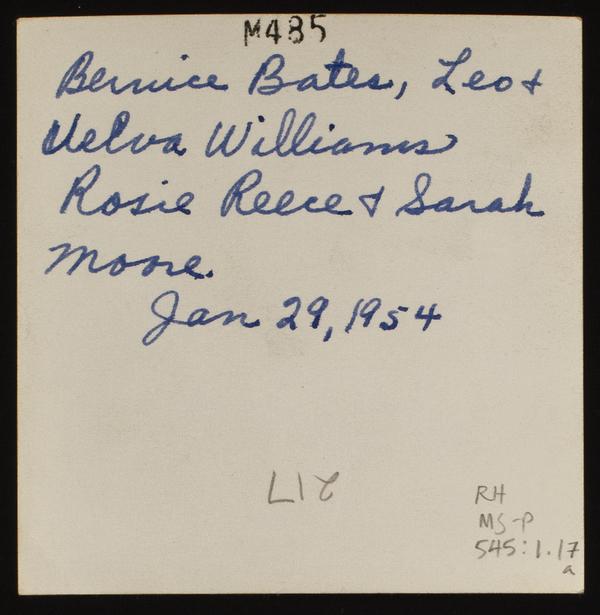 M485
Bernice Bates, Leo &
Velva Williams
Rosie Reece & Sarah
Moore.
Jan 29, 1954
RH
MS-P
545:1.17
a